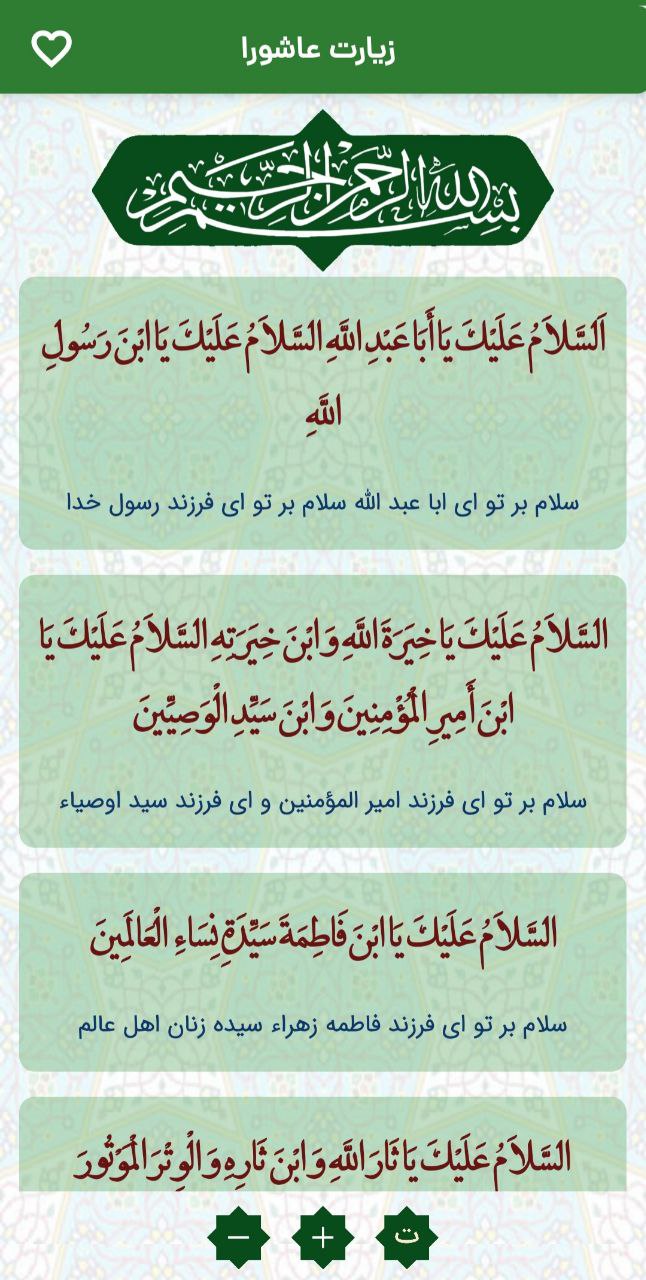 زیارت عاشورا
بسم الله الرحمن الرحیم
اَلسَّلاَمُ عَلَيْكَ يَا أَبَا عَبْدِ اللَّهِ السَّلاَمُ عَلَيْكَ يَا ابْنَ رَسُولِ
اللَّهِ
سلام بر تو ای ابا عبد الله سلام بر تو ای فرزند رسول خدا
السَّلاَمُ عَلَيْكَ يَا خِيَرَةَ اللَّهِ وَ ابْنَ خِيَرَتِهِ السَّلاَمُ عَلَيْكَ يَا
ابْنَ أَمِيرِ الْمُؤْمِنِينَ وَ ابْنَ سَيِّدِ الْوَصِيِّينَ
سلام بر تو ای فرزند امیر المؤمنین و ای فرزند سید اوصیاء
السَّلاَمُ عَلَيْكَ يَا ابْنَ فَاطِمَةَ سَيِّدَةِ نِسَاءِ الْعَالَمِينَ
سلام بر تو ای فرزند فاطمه زهراء سیده زنان اهل عالم
السَّلاَمُ عَلَيْكَ يَا ثَارَ اللَّهِ وَ ابْنَ ثَارِهِ وَ الْوِتْرَ الْمَوْتُورَ
− + ت